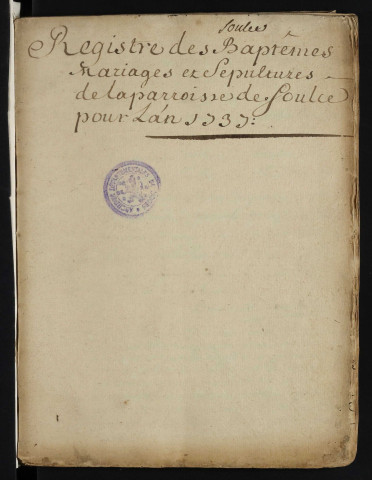 Soulce
Registre des Baptêmes
Mariages et Sepultures
de la parroisse de Soulce
pour L'an 1737.
ARCHIVES DEPARTEMENTALES